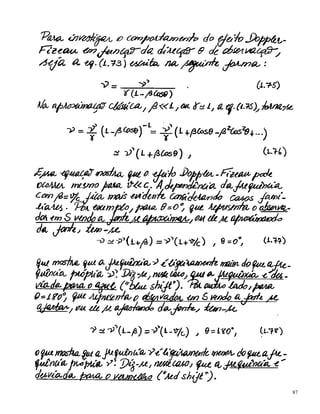 Para investigar o comportamento do efeito Doppler-
Fizeau em função da direção θ de observação,
seja a eq. (1.73) escrita na seguinte forma:
ν = ν' / γ(1-βcosθ) (1.75)
Na aproximação clássica, β<<1, ou γ≃1, a eq. (1.75), torna-se
ν = ν'/γ (1-βcosθ)⁻¹ = ν'/γ (1+βcosθ-β²cos²θ+...)
≃ ν'(1+βcosθ) , (1.76)
Essa equação mostra que o efeito Doppler-Fizeau pode
ocorrer mesmo para v<<c. A dependência da frequência
com β=v/c fica mais evidente considerando casos fami-
liares. Por exemplo, para θ=0°, que representa o observa-
dor em S vendo a fonte se aproximar, ou ele se aproximando
da fonte, tem-se
ν≃ν'(1+β)=ν'(1+v/c) , θ=0°, (1.77)
que mostra que a frequência ν é ligeiramente maior do que a fre-
quência própria ν'. Diz-se, nesse caso, que a frequência é des-
viada para o azul ("blue shift"). Por outro lado, para
θ=180°, que representa o observador em S vendo a fonte se
afastar, ou ele se afastando da fonte, tem-se
ν≃ν'(1-β)=ν'(1-v/c) , θ=180°, (1.78)
o que mostra que a frequência ν é ligeiramente menor do que a fre-
quência própria ν'. Diz-se, nesse caso, que a frequência é
desviada para o vermelho ("red shift").
87